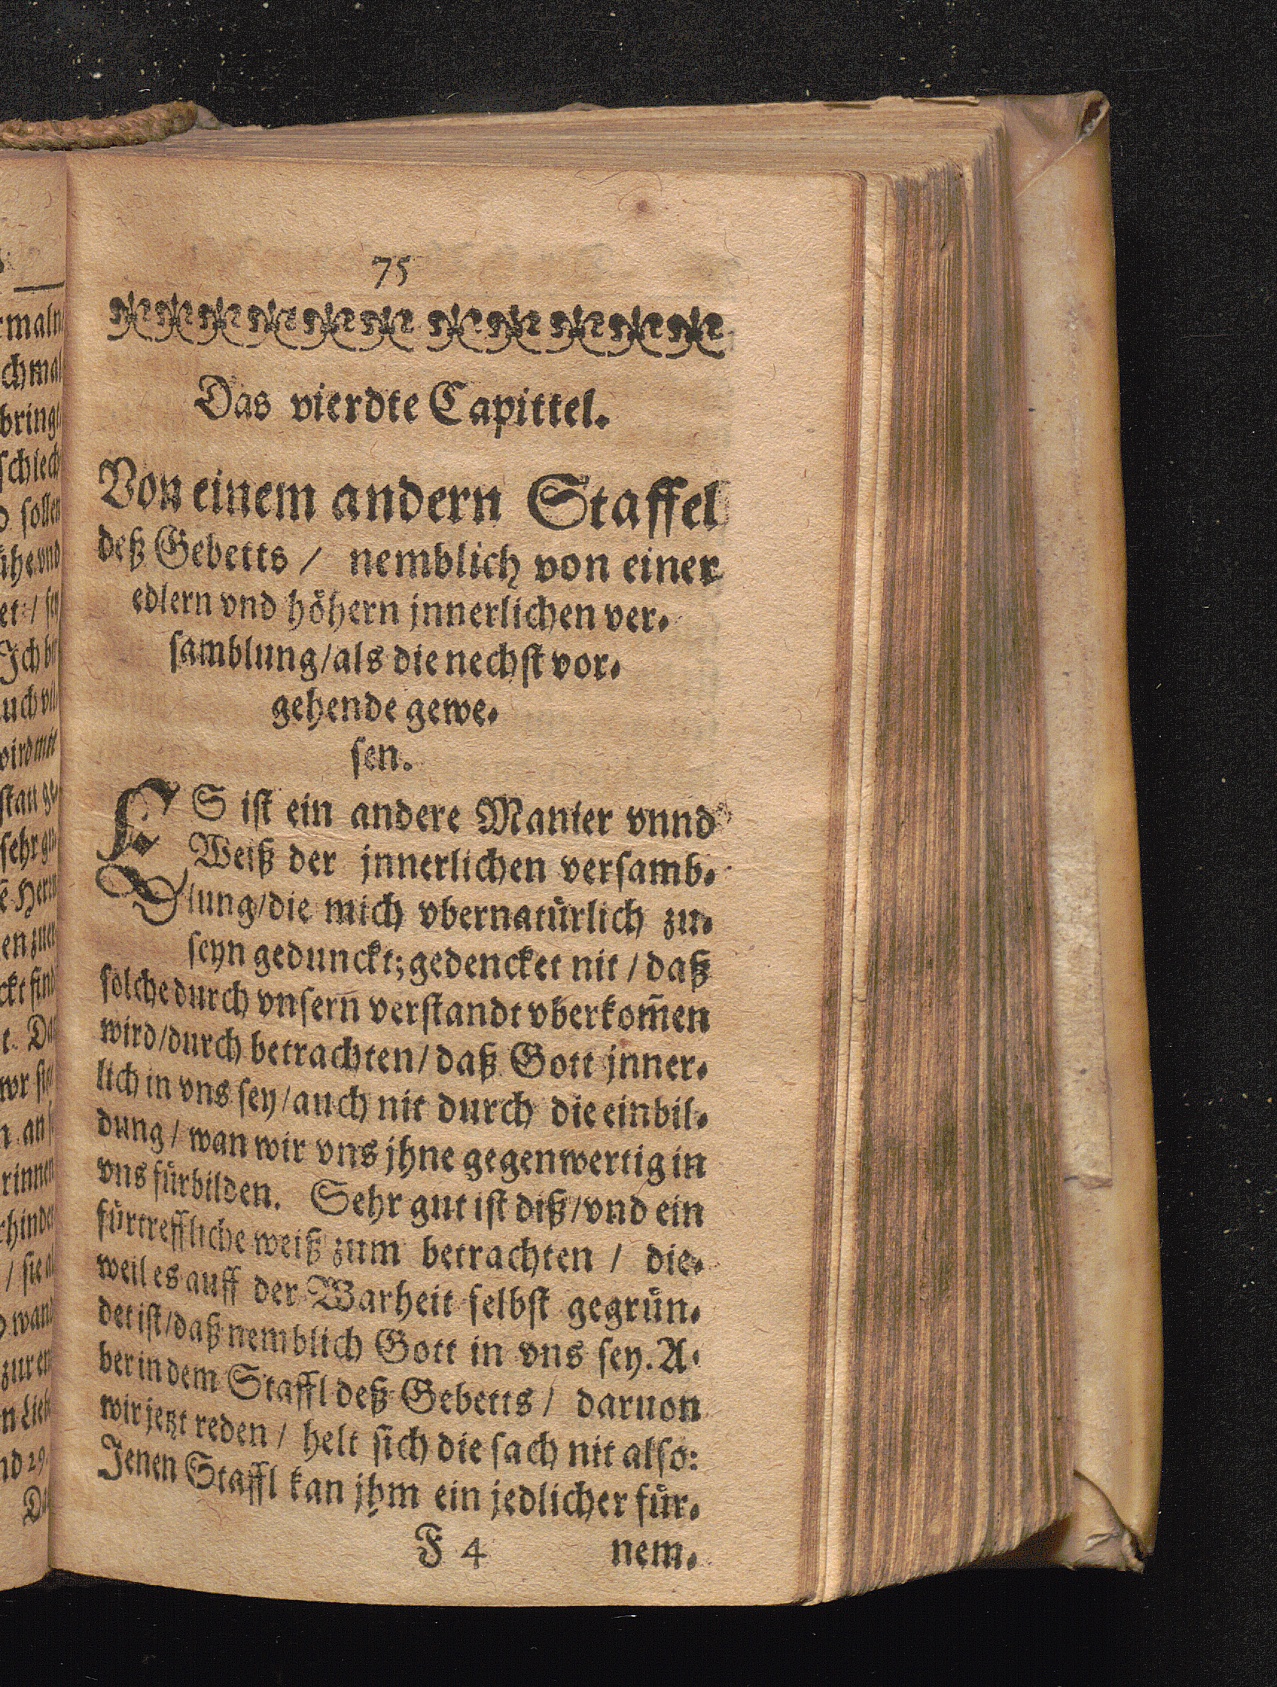 75
Das vierdte Capittel.
Von einem andern Staffel
deß Gebetts / nemblich von einer
edlern vnd höhern jnnerlichen ver-
samblung/als die nechst vor-
gehende gewe-
sen.
ES ist ein andere Manier vnnd
Weiß der jnnerlichen versamb-
lung/die mich vbernatürlich zu-
seyn gedunckt; gedencket nit / daß
solche durch vnsern̄ verstandt vberkom̄en
wird/durch betrachten/ daß Gott jnner-
lich in vns sey/auch nit durch die einbil-
dung/ wan wir vns jhne gegenwertig in
vns fürbilden. Sehr gut ist diß/vnd ein
fürtreffliche weiß zum betrachten / die-
weil es auff der Warheit selbst gegrün-
det ist/daß nemblich Gott in vns sey. A-
ber in dem Staffl deß Gebetts / daruon
wir jetzt reden / helt sich die sach nit also:
Jenen Staffl kan jhm ein jedlicher für-
F 4 nem-